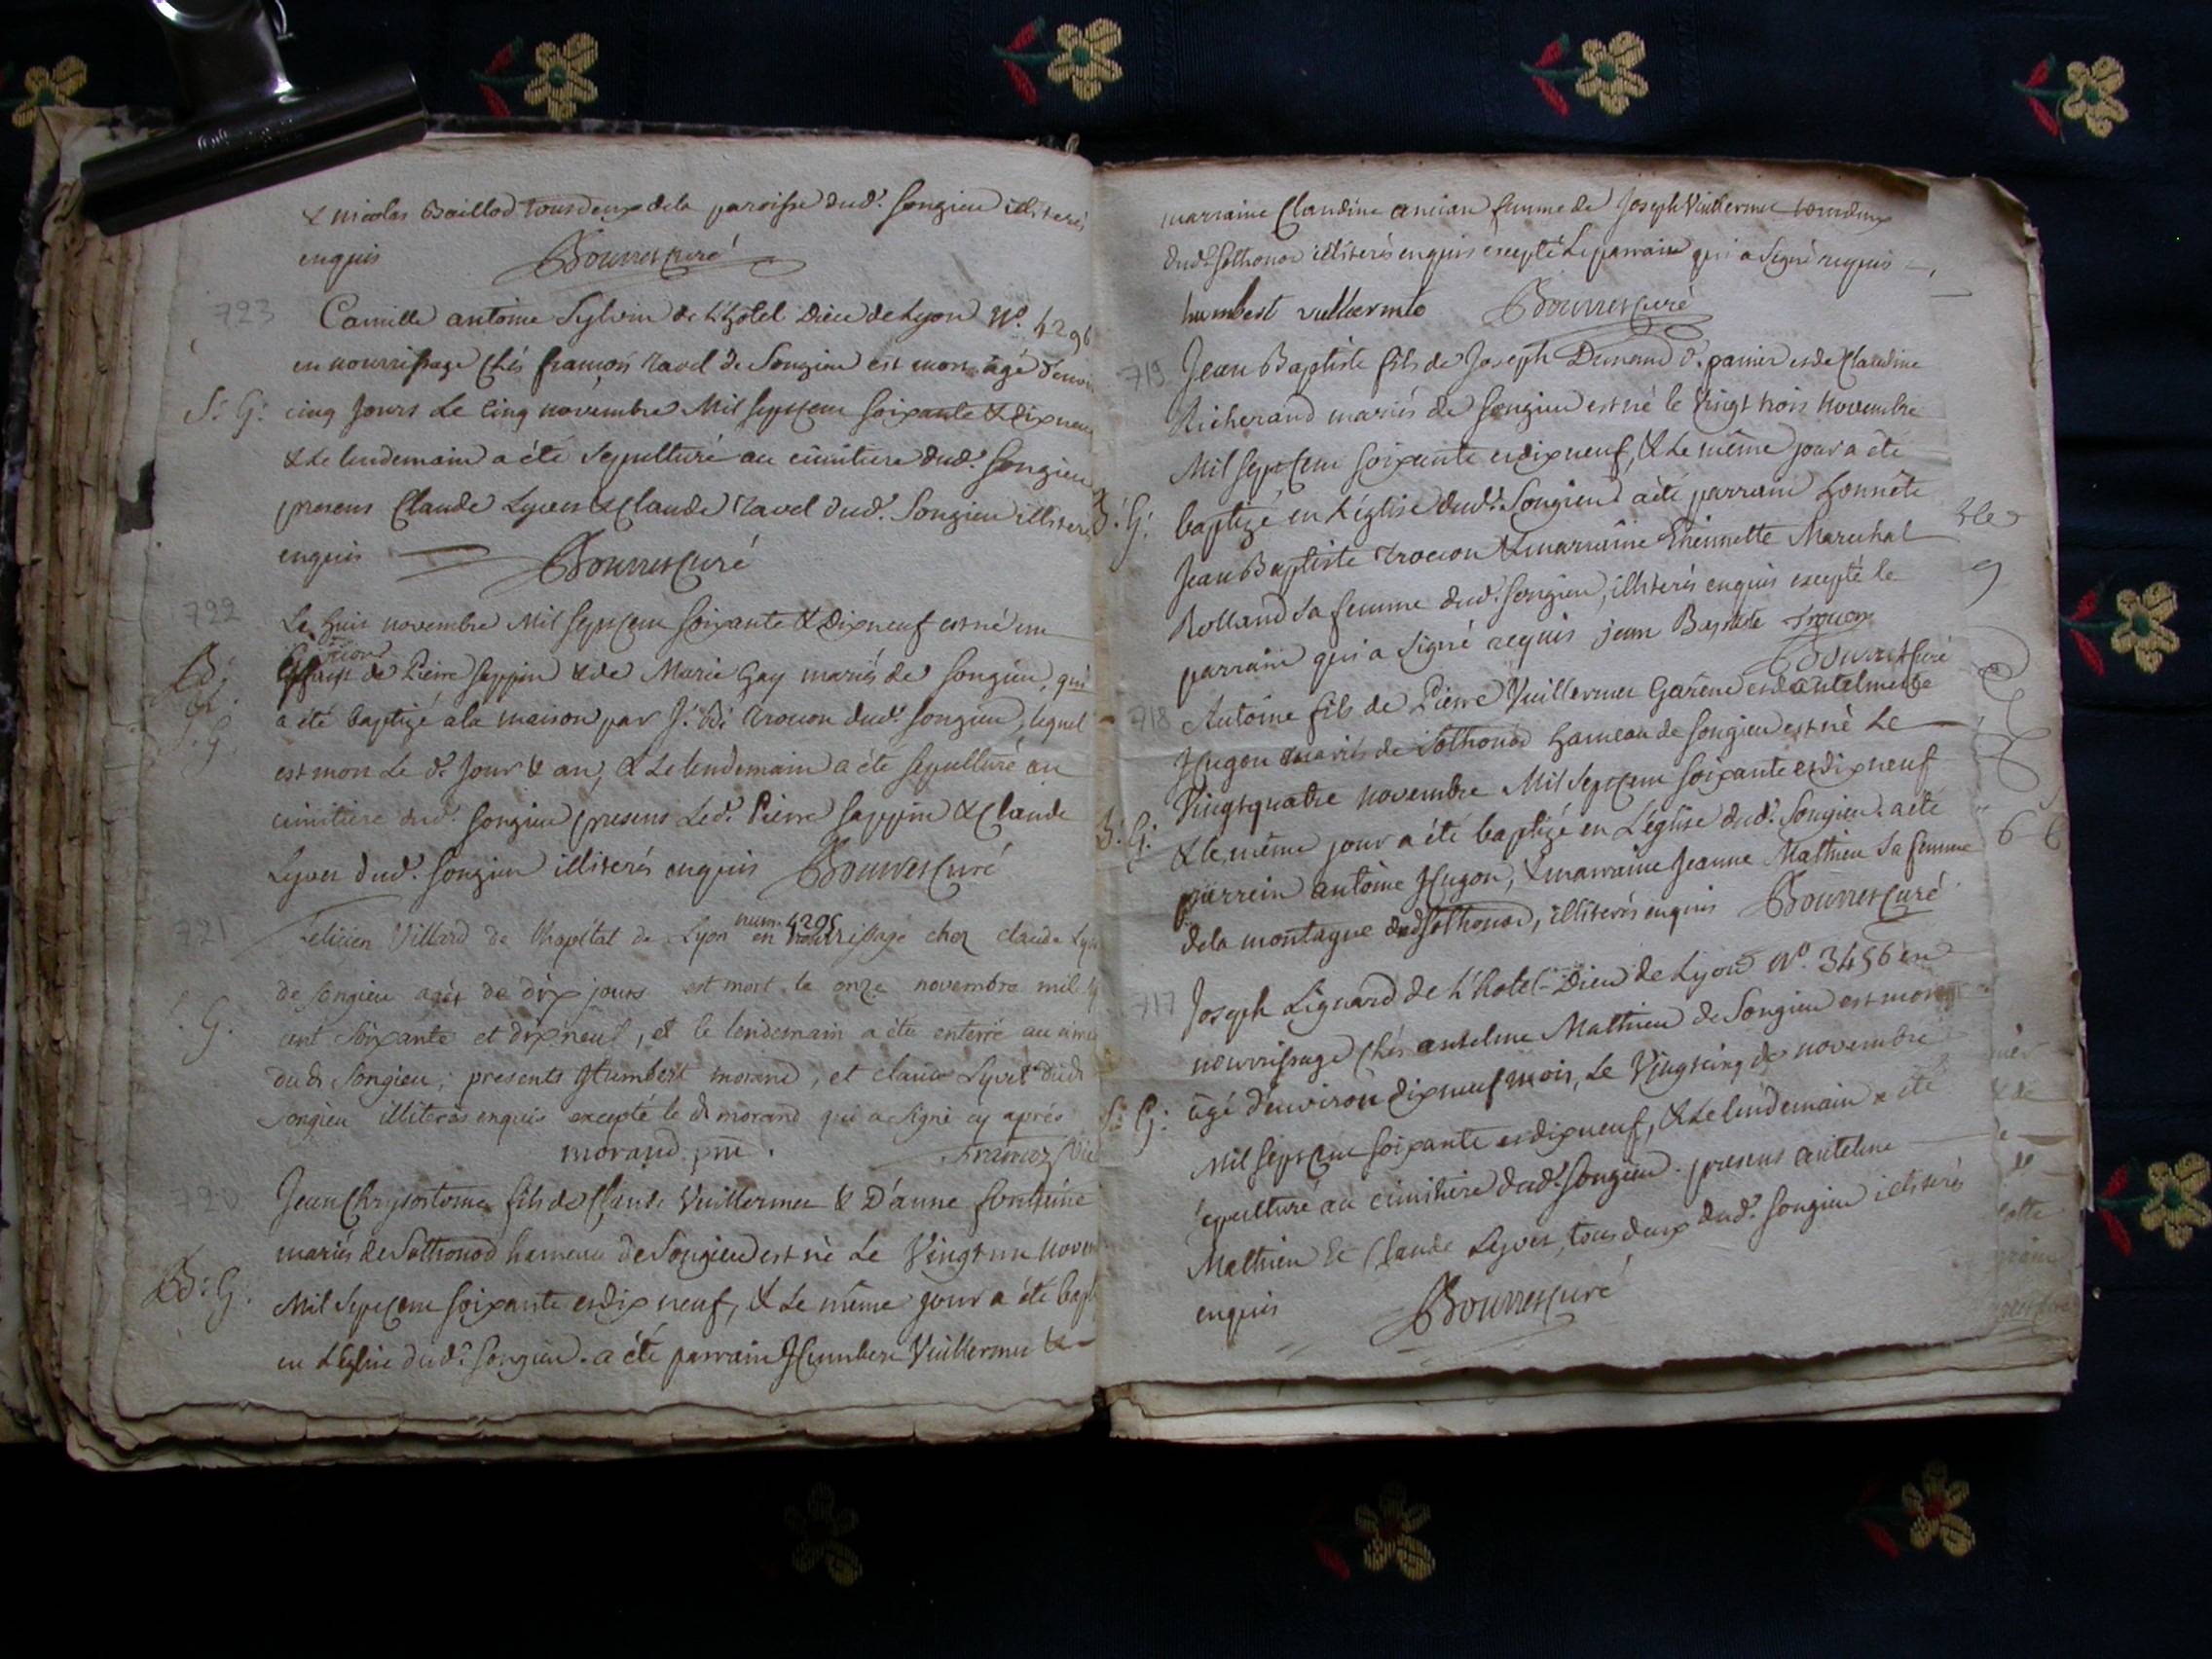 & nicolas Baillod tous deux de la paroisse dud. Songieu illiterés
enquis Bouvret curé
723
Camille antoine Sylvin de L'hôtel Dieu de Lyon N.º 4296
en nourrissage chés françois ravel de Songieu est mort agé d'envi
S: G: cinq jours Le cinq novembre Mil sept cent soixante & dix neuf
& Le lendemain a été sepulturé au cimitiere dud. Songieu
presens Claude Lyvet & Claude ravel dud. Songieu illiter
enquis Bouvret curé
722
Le huit novembre Mil sept cent soixante & dix neuf est né un
garçon
de Pierre seppin & de Marie Gay mariés de Songieu, qui
B: & S: G.
a été baptizé a la maison par J: Bte trocon dud. Songieu, lequel
est mort Le d. jour & an, & Le lendemain a été sepulturé au
cimitiere dud. Songieu presens Led. Pierre seppin & Claude
Lyvet dud. Songieu illiterés enquis Bouvret curé
721
num. 4205
félicien Villard de l'hapital de Lyon en nourrissage chez claude Lyv
de songieu agés de dix jours est mort le onze novembre mil
G. cent soixante et dix neuf, et le lendemain a été enterré au
dudt Songieu; presents humbert morand, et claude Lyvet dudt
songieu illiterés enquis excepté le dt morand qui a signé cy aprés
morand pnt. francoz
720
Jean Chrysostome fils de Claude Vuillermet & D'anne fontaine
mariés de Sothonod hameau de Songieu est né Le Vingt un nove
B: G. Mil sept cent soixante et dix neuf, & Le même jour a été bapt
en L'église dud. Songieu. a été parrain Humbert Vuillermet &
marraine Claudine ancian femme de Joseph Vuillermet tous deux
dud. Sothonod illiterés enquis excepté Le parrain qui a signé requis
humbert vullermto Bouvret curé
719
Jean Baptiste fils de Joseph Demand d. panier et de Claudine
Richerand mariés de Songieu est né le Vingt trois Novembre
Mil sept cent soixante et dix neuf, & Le même jour a été
B: G: baptizé en L'église dud. Songieu. a été parrain honnête
Jean Baptiste trocon & marraine Etiennette Marechal
Rolland sa femme dud. Songieu, illiterés enquis excepté le
parrain qui a signé requis jean Baptiste Trocon
Bouvret curé
718
Antoine fils de Pierre Vuillermet Garene et d'antelmette
Hugon mariés de Sothonod hameau de songieu est né Le
Vingt quatre novembre Mil sept cent soixante et dix neuf
B: G: & le même jour a été baptizé en L'église dud. Songieu. a été
parrein antoine Hugon, & marraine Jeanne Mathieu sa femme
de la montagne dud Sothonod, illiterés enquis Bouvret curé
717
Joseph Liguard de L'hotel-Dieu de Lyon N.º 3456 en
nourrissage chés antelme Mathieu de Songieu est mort
S: G: âgé d'environ dix neuf mois, Le Vingt cinq de novembre
Mil sept cent soixante et dix neuf, & Le lendemain a été
sepulturé au cimitiere dud. Songieu. presens antelme
Mathieu & Claude Lyvet, tous deux dud. Songieu illiterés
enquis Bouvret curé